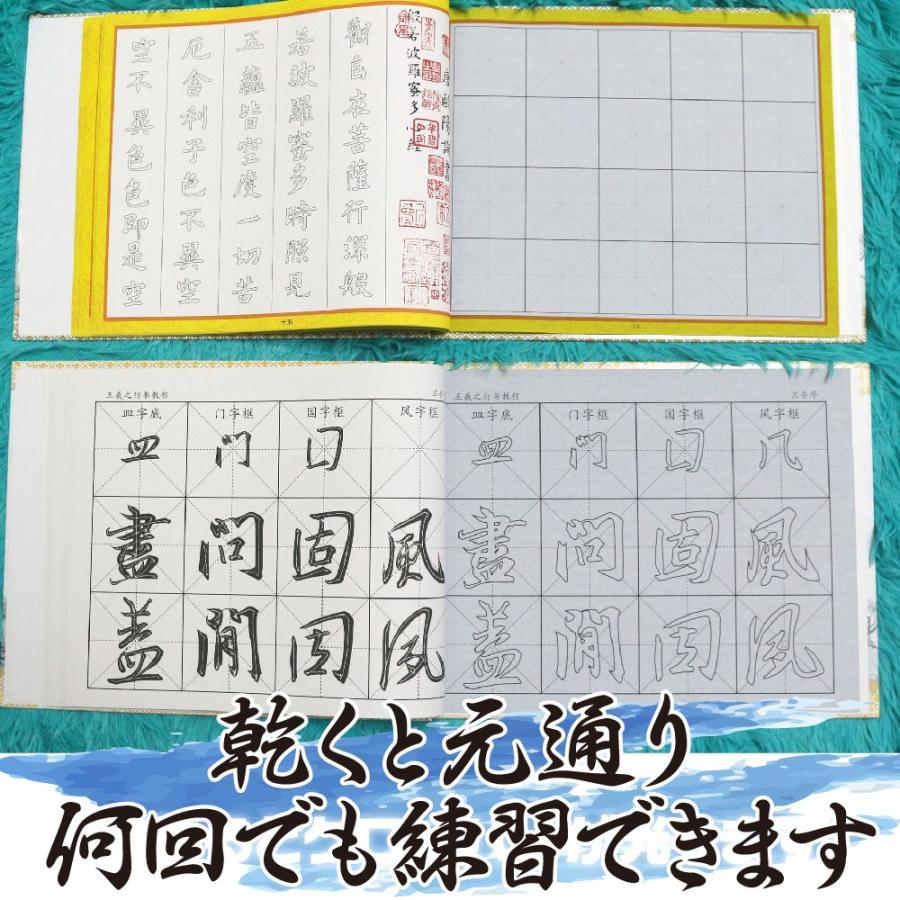 般若波羅蜜多心經
觀自在菩薩行深般
若波羅蜜多時照見
五蘊皆空度一切苦
厄舍利子色不異空
空不異色色即是空
十五
王羲之行书教程
皿字底 门字框 国字框 风字框
皿 门 囗
盡 問 固 風
盖 閒 因 夙
王羲之行书教程 兰亭序
皿字底 门字框 国字框 风字框
皿 门 囗 几
盡 問 固 風
盖 閒 因 夙
乾くと元通り
何回でも練習できます